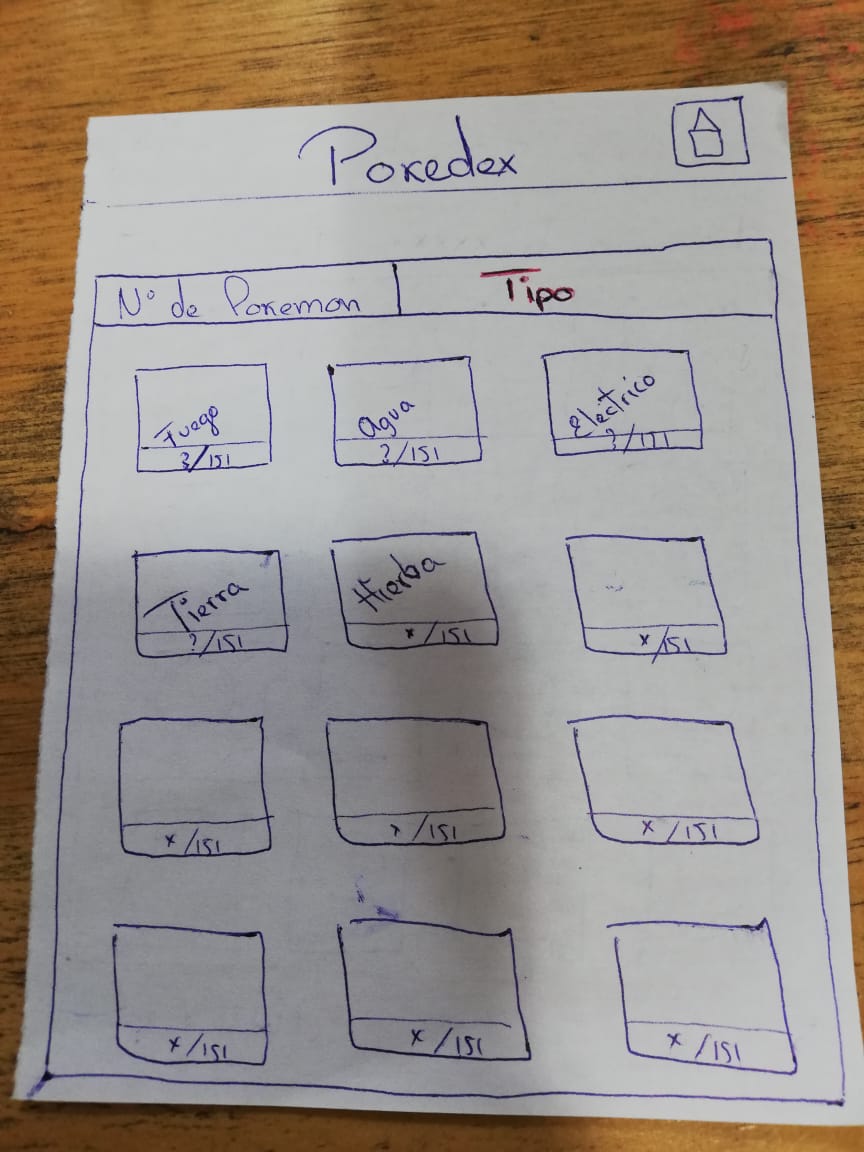 Pokedex
N° de Pokemon
Tipo
Fuego
?/151
Agua
?/151
Electrico
?/151
Tierra
?/151
Hierba
x/151
x/151
x/151
x/151
x/151
x/151
x/151
x/151